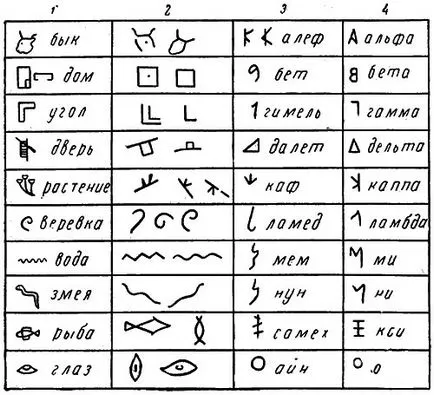 1 2 3 4
бык алеф А альфа
дом бет в бета
угол гимель гамма
дверь далет Δ дельта
растение каф каппа
веревка ламед ламбда
вода мем ми
змея нун ни
рыба самех кси
глаз айн о